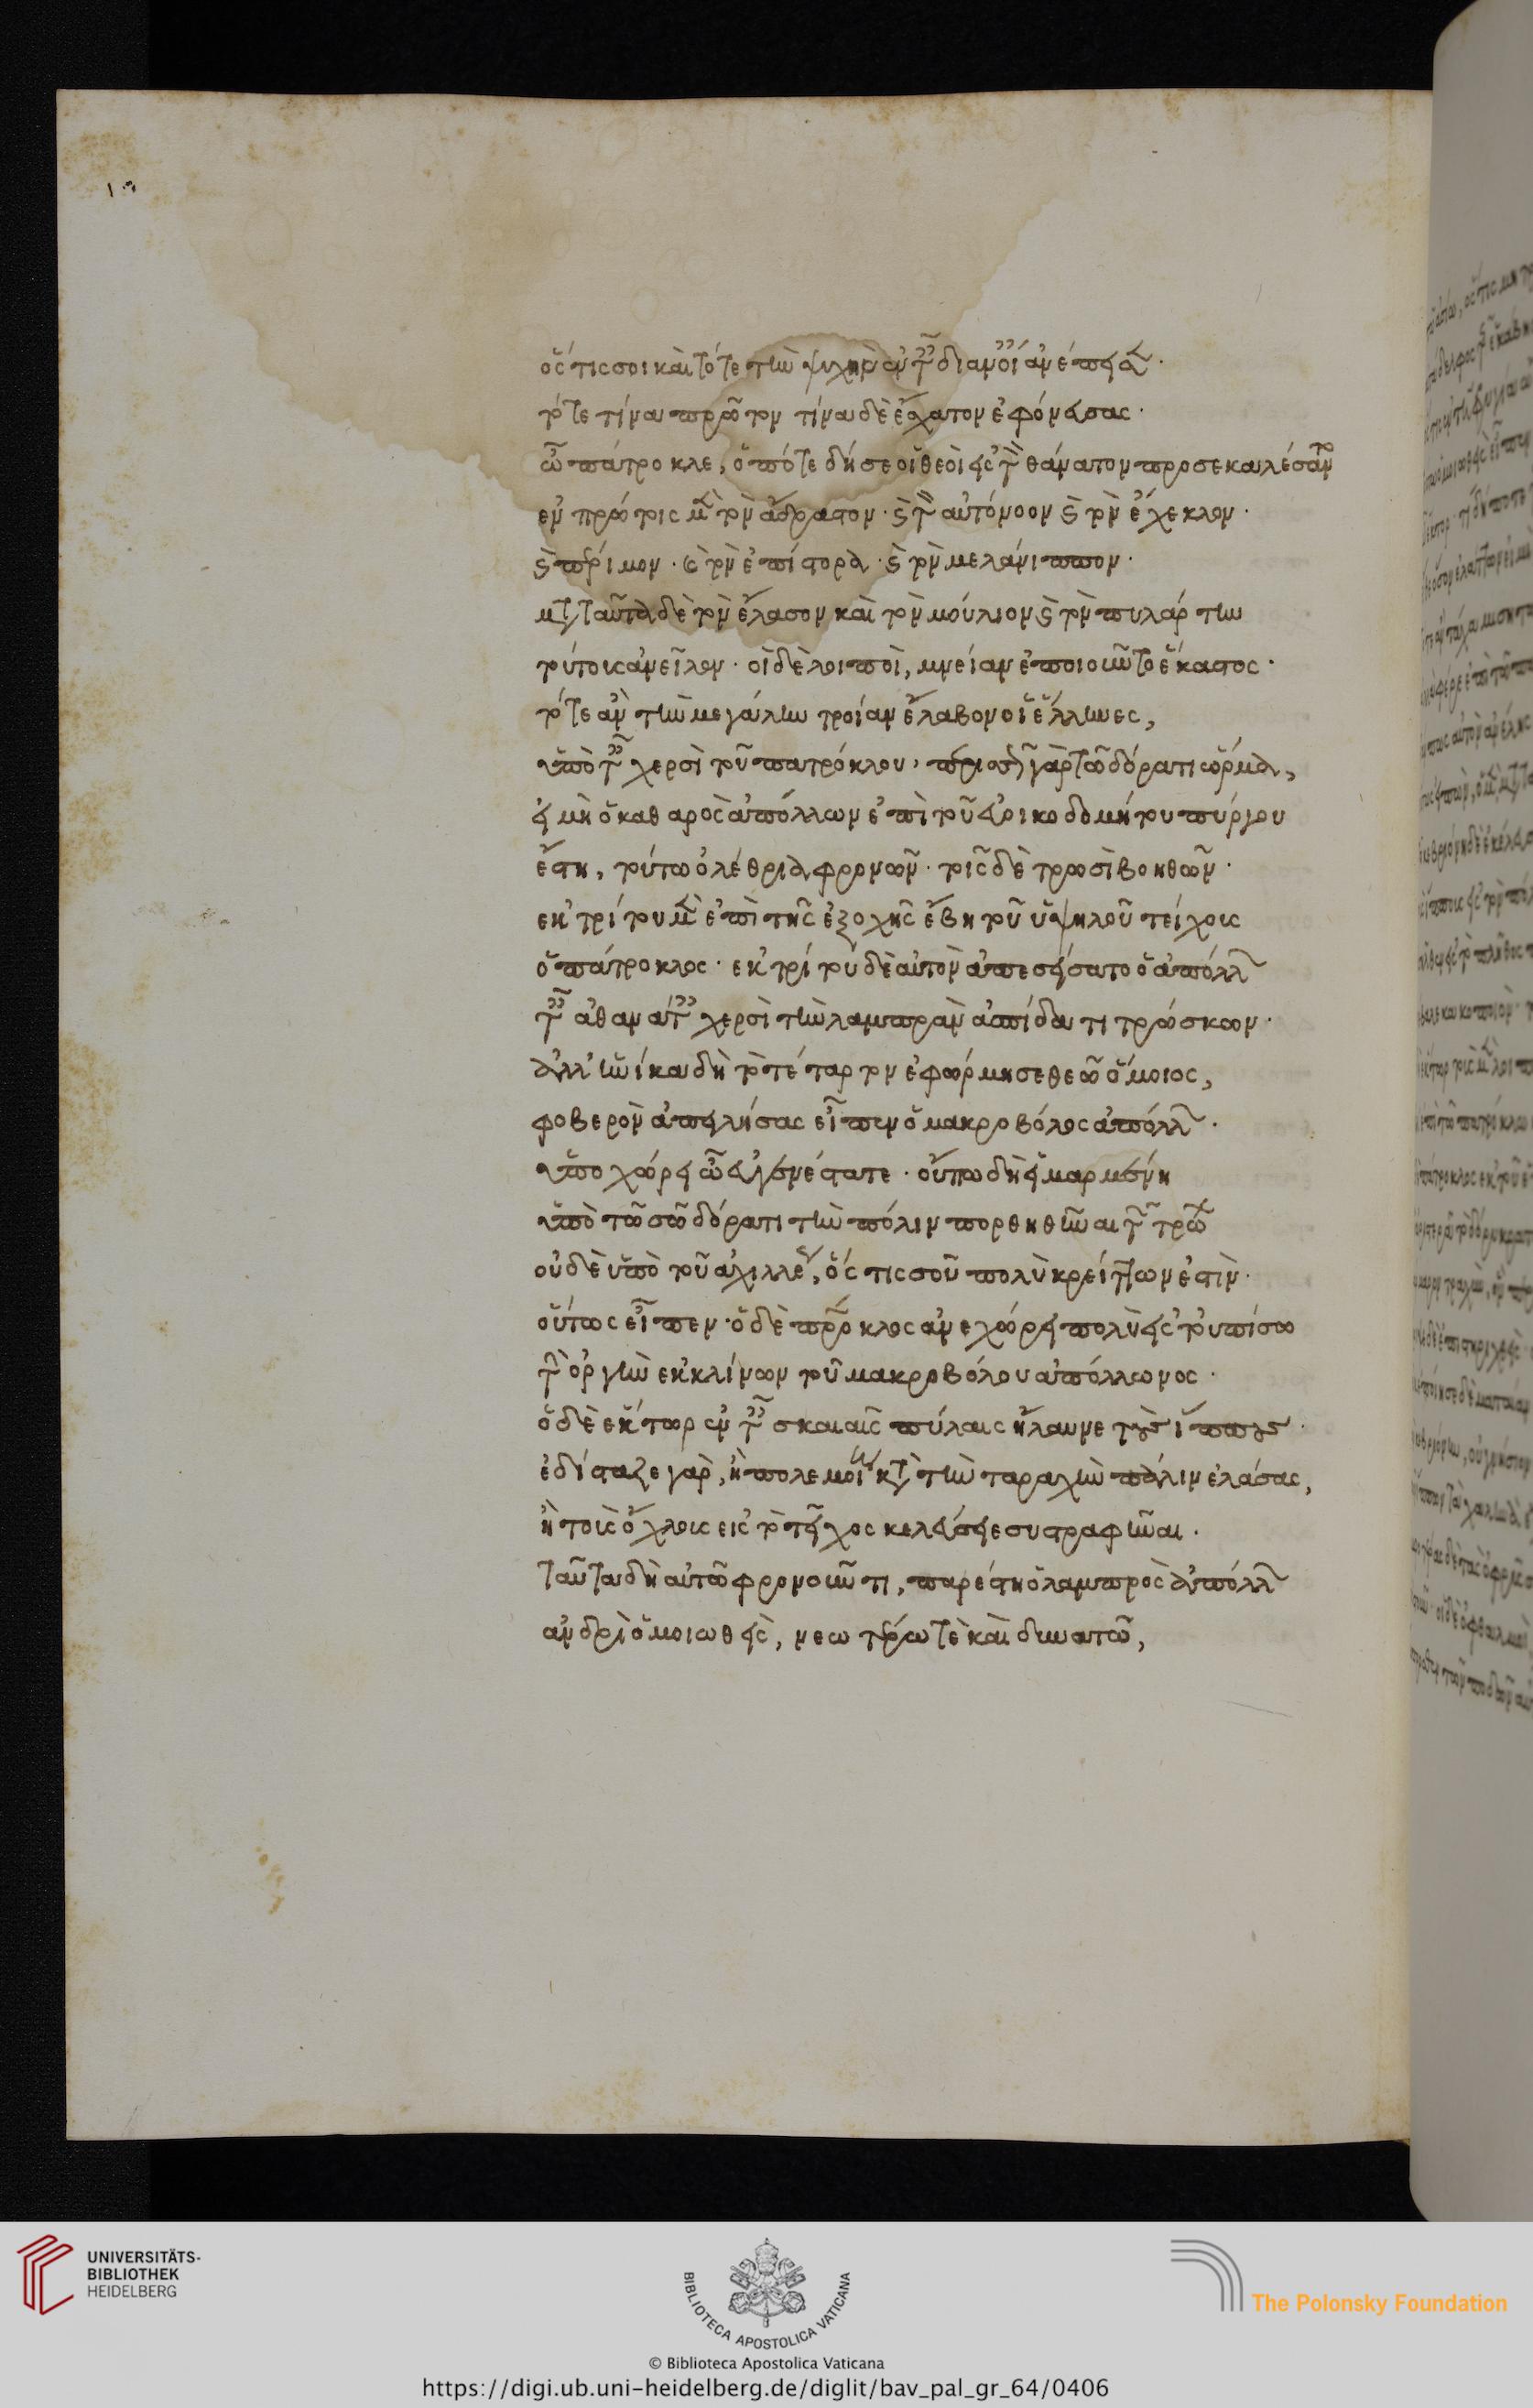 ὅς τις σοι καὶ τότε τὴν ψυχὴν ἐν ταῖς διανοίαις ἔπεισεν·
τότε τίνα πρῶτον τίνα δὲ ἔσχατον ἐφόνευσας·
ὦ πάτροκλε, ὁπότε δή σε οἱ θεοὶ εἰς τὸν θάνατον προσεκαλέσαντο
ἐν πρώτοις μὲν τὸν ἄδραστον· καὶ τὸν αὐτόνοον καὶ τὸν ἔχεκλον·
καὶ πέριμον· καὶ τὸν ἐπίστορα· καὶ τὸν μελάνιππον·
μετὰ ταῦτα δὲ τὸν ἔλασον καὶ τὸν μούλιον καὶ τὸν πυλάρτην
τούτους ἀνεῖλεν· οἱ δὲ λοιποὶ, μνείαν ἐποιοῦντο ἕκαστος·
τότε ἂν τὴν μεγάλην τροίαν ἔλαβον οἱ ἕλληνες,
ὑπὸ ταῖς χερσὶ τοῦ πατρόκλου, περισσῶς γὰρ τῷ δόρατι ὥρμα,
εἰ μὴ ὁ καθαρὸς ἀπόλλων ἐπὶ τοῦ εὐοικοδομήτου πύργου
ἔστη, τούτῳ ὀλέθρια φρονῶν· τοῖς δὲ τρωσὶ βοηθῶν·
ἐκ τρίτου μὲν ἐπὶ τῆς ἐξοχῆς ἔβη τοῦ ὑψηλοῦ τείχους
ὁ πάτροκλος· ἐκ τρίτου δὲ αὐτὸν ἀπεσείσατο ὁ ἀπόλλων
ταῖς ἀθανάταις χερσὶ τὴν λαμπρὰν ἀσπίδα τιτρώσκων·
ἀλλ' ἡνίκα δὴ τὸ τέταρτον ἐφώρμησε θεῷ ὅμοιος,
φοβερὸν ἀπειλήσας εἶπεν ὁ μακροβόλος ἀπόλλων·
ὑποχώρει ὦ εὐγενέστατε· οὔπω δὴ εἱμαρμένη
ὑπὸ τῷ σῷ δόρατι τὴν πόλιν πορθηθῆναι τῶν τρώων
οὐδὲ ὑπὸ τοῦ ἀχιλλέως, ὅς τις σοῦ πολὺ κρείττων ἐστὶν·
οὕτως εἶπεν· ὁ δὲ πάτροκλος ἀνεχώρει πολὺ εἰς τοὐπίσω
τὴν ὀργὴν ἐκκλίνων τοῦ μακροβόλου ἀπόλλωνος·
ὁ δὲ ἕκτωρ ἐν ταῖς σκαιαῖς πύλαις ἤλαυνε τοὺς ἵππους·
ἐδίσταζε γὰρ, ἢ πολεμοίη κατὰ τὴν ταραχὴν πάλιν ἐλάσας,
ἢ τοῖς ὄχλοις εἰς τὸ τεῖχος κελεύσειε συστραφῆναι·
ταῦτα δὴ αὐτῷ φρονοῦντι, παρέστη ὁ λαμπρὸς ἀπόλλων
ἀνδρὶ ὁμοιωθεὶς, νεωτέρῳ τε καὶ δυνατῷ,
UNIVERSITÄTS-
BIBLIOTHEK
HEIDELBERG
BIBLIOTECA APOSTOLICA VATICANA
© Biblioteca Apostolica Vaticana
The Polonsky Foundation
https://digi.ub.uni-heidelberg.de/diglit/bav_pal_gr_64/0406